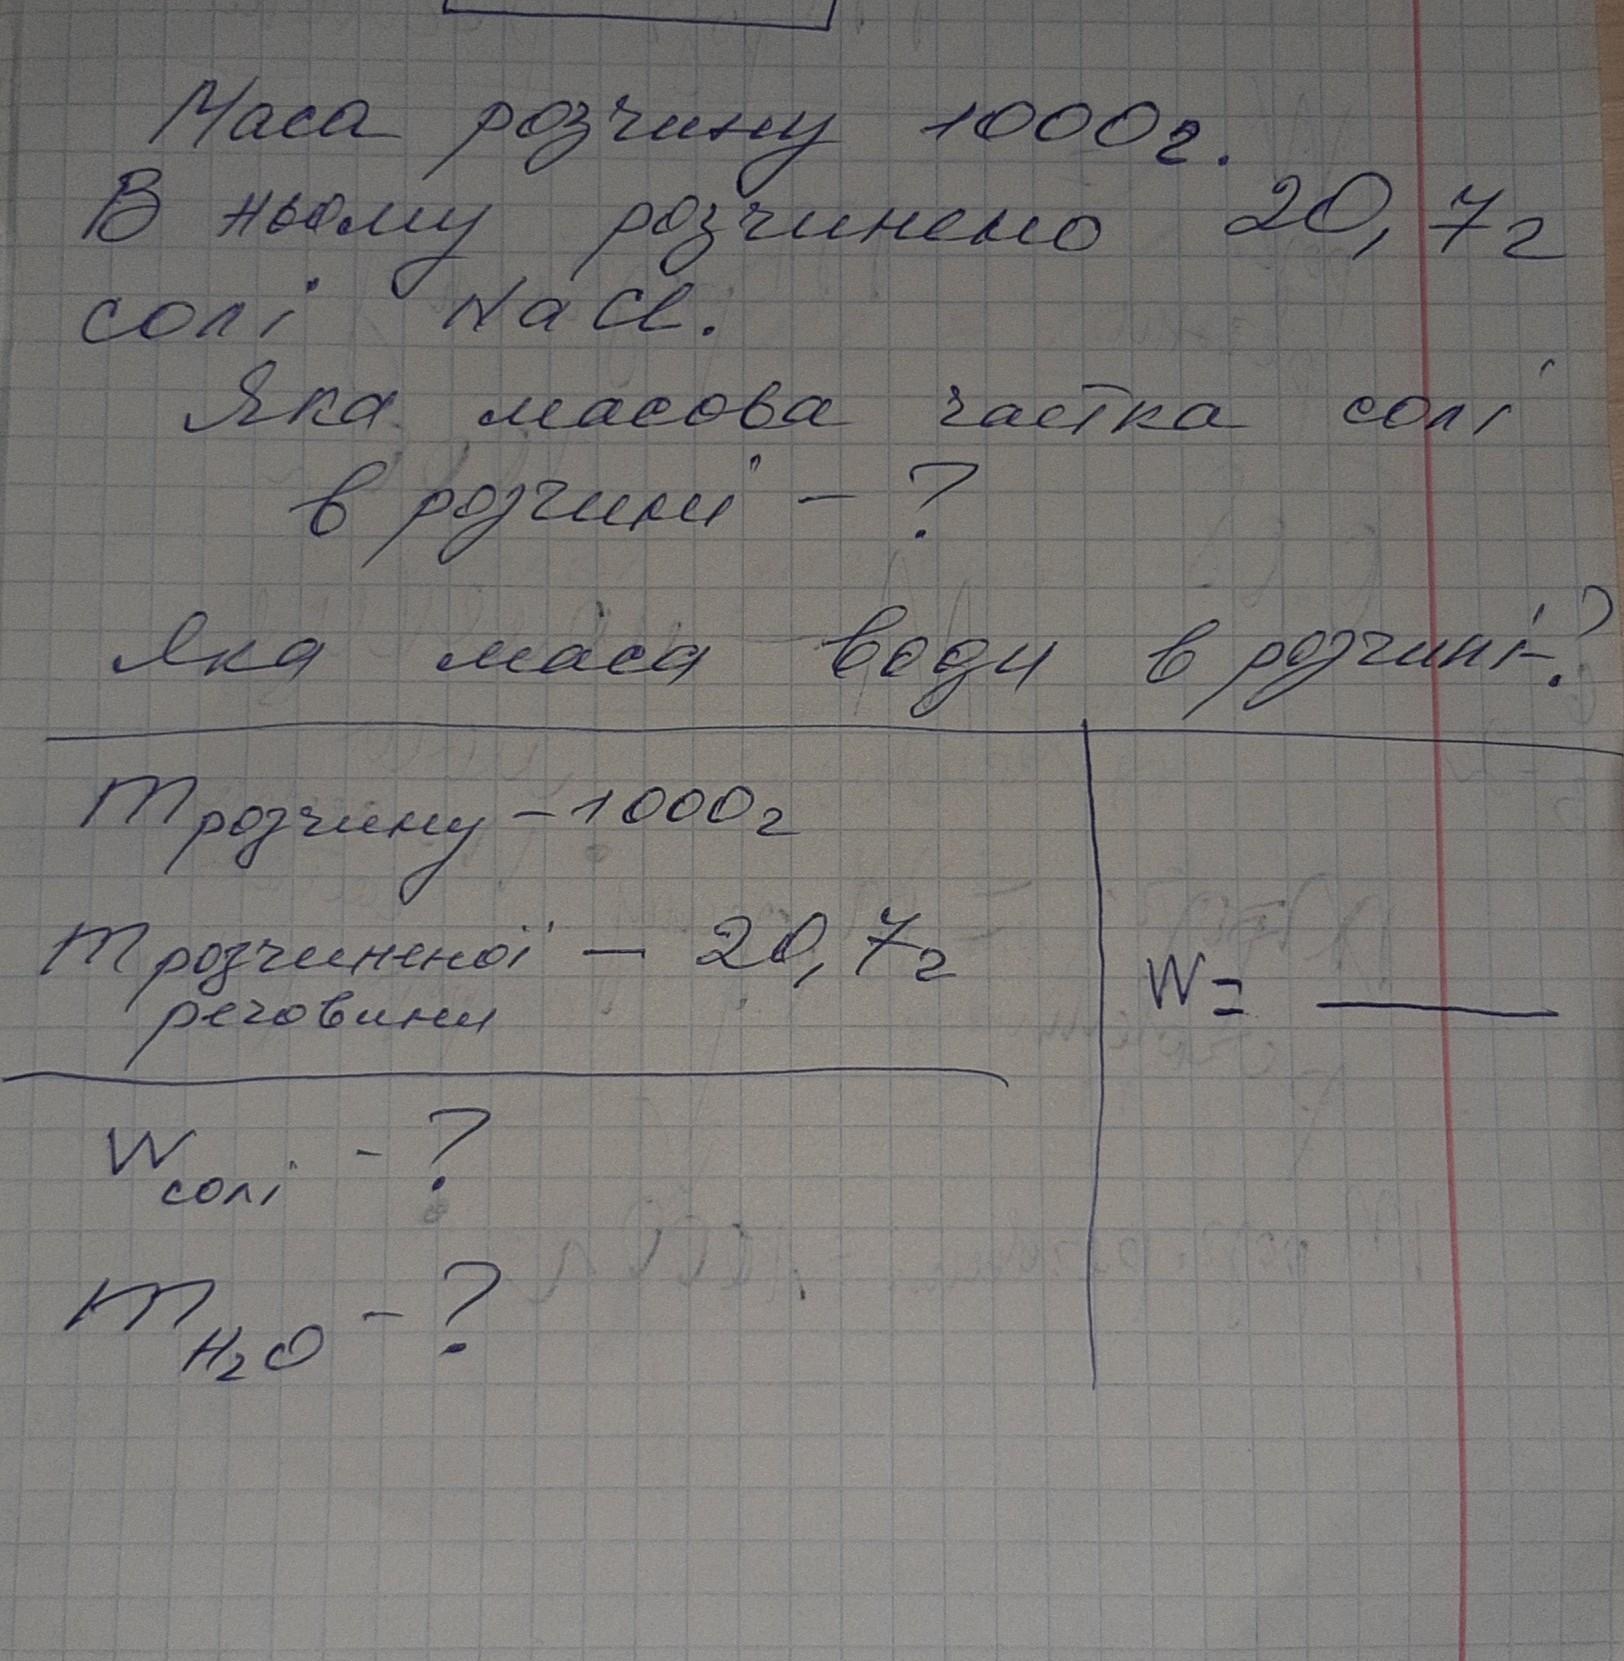 Маса розчину 1000г.
В ньому розчинено 20,7г
солі NaCl.
Яка масова частка солі
в розчині - ?
Яка маса води в розчині-?
m розчину - 1000г
m розчиненої - 20,7г
речовини
W солі - ?
m H₂O - ?
W = ____